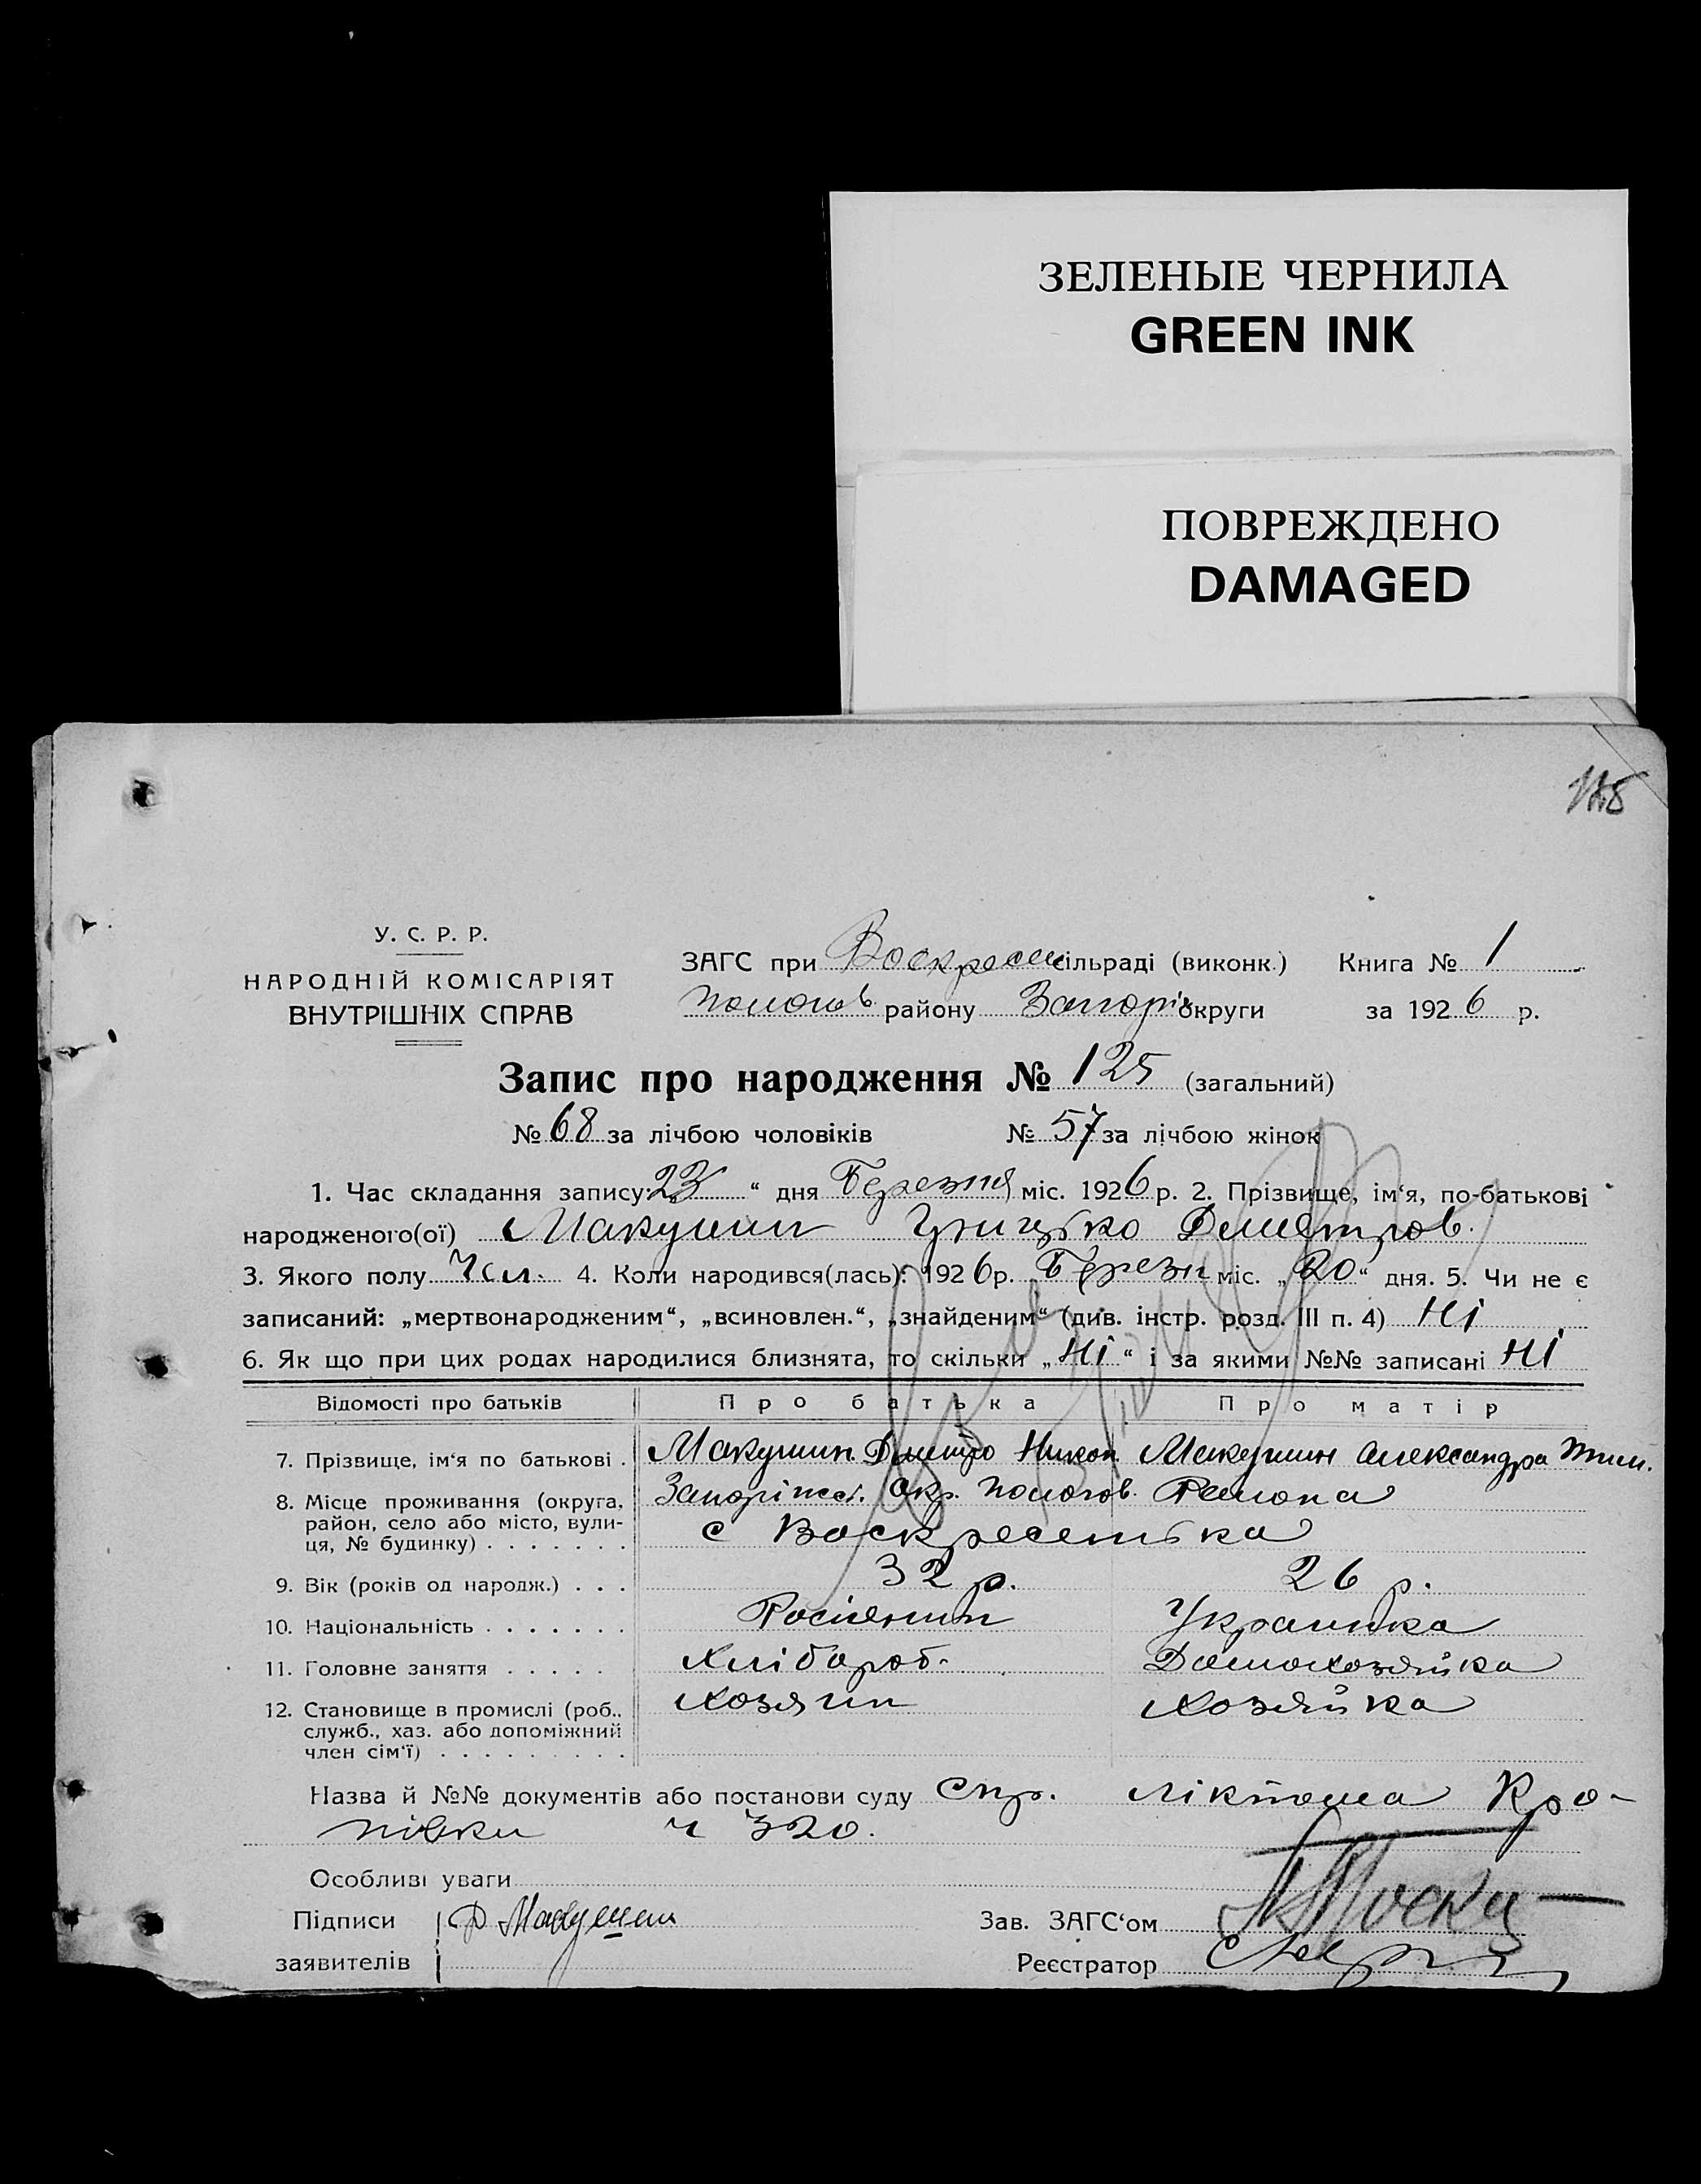 ЗЕЛЕНЫЕ ЧЕРНИЛА
GREEN INK
ПОВРЕЖДЕНО
DAMAGED
У. С. Р. Р.
НАРОДНІЙ КОМІСАРІЯТ
ВНУТРІШНІХ СПРАВ
ЗАГС при Воскресен сільраді (виконк.) Книга № 1
Пологов району Запоріз округи за 1926 р.
Запис про народження № 125 (загальний)
№ 68 за лічбою чоловіків № 57 за лічбою жінок
1. Час складання запису: „23“ дня Березня міс. 1926 р. 2. Прізвище, ім‘я, по-батькові
народженого(ої) Макушин Грицько Дметров.
3. Якого полу Чол. 4. Коли народився(лась): 1926 р. Березн міс. „20“ дня. 5. Чи не є
записаний: „мертвонародженим“, „всиновлен.“, „знайденим“ (див. інстр. розд. III п. 4) Ні
6. Як що при цих родах народилися близнята, то скільки „Ні“ і за якими №№ записані Ні
Відомості про батьків Про батька Про матір
7. Прізвище, ім‘я по батькові . Макушин Дмитро Никон. Макушин Александра Тим.
8. Місце проживання (округа, район, село або місто, вули-ця, № будинку) . . . . . . . Запоріжс. Окр. Пологов. Района
с Воскресенька
9. Вік (років од народж.) . . . 32 р. 26 р.
10. Національність . . . . . . . Росіянин Украинка
11. Головне заняття . . . . . Хлібороб. Домохозяйка
12. Становище в промислі (роб., служб., хаз. або допоміжний член сім‘ї) . . . . . . . . . Хозяин Хозяйка
Назва й №№ документів або постанови суду Спр. лікпома Кро-
півки ч 320.
Особливі уваги
Підписи Д Макушин Зав. ЗАГС‘ом
заявителів Реєстратор